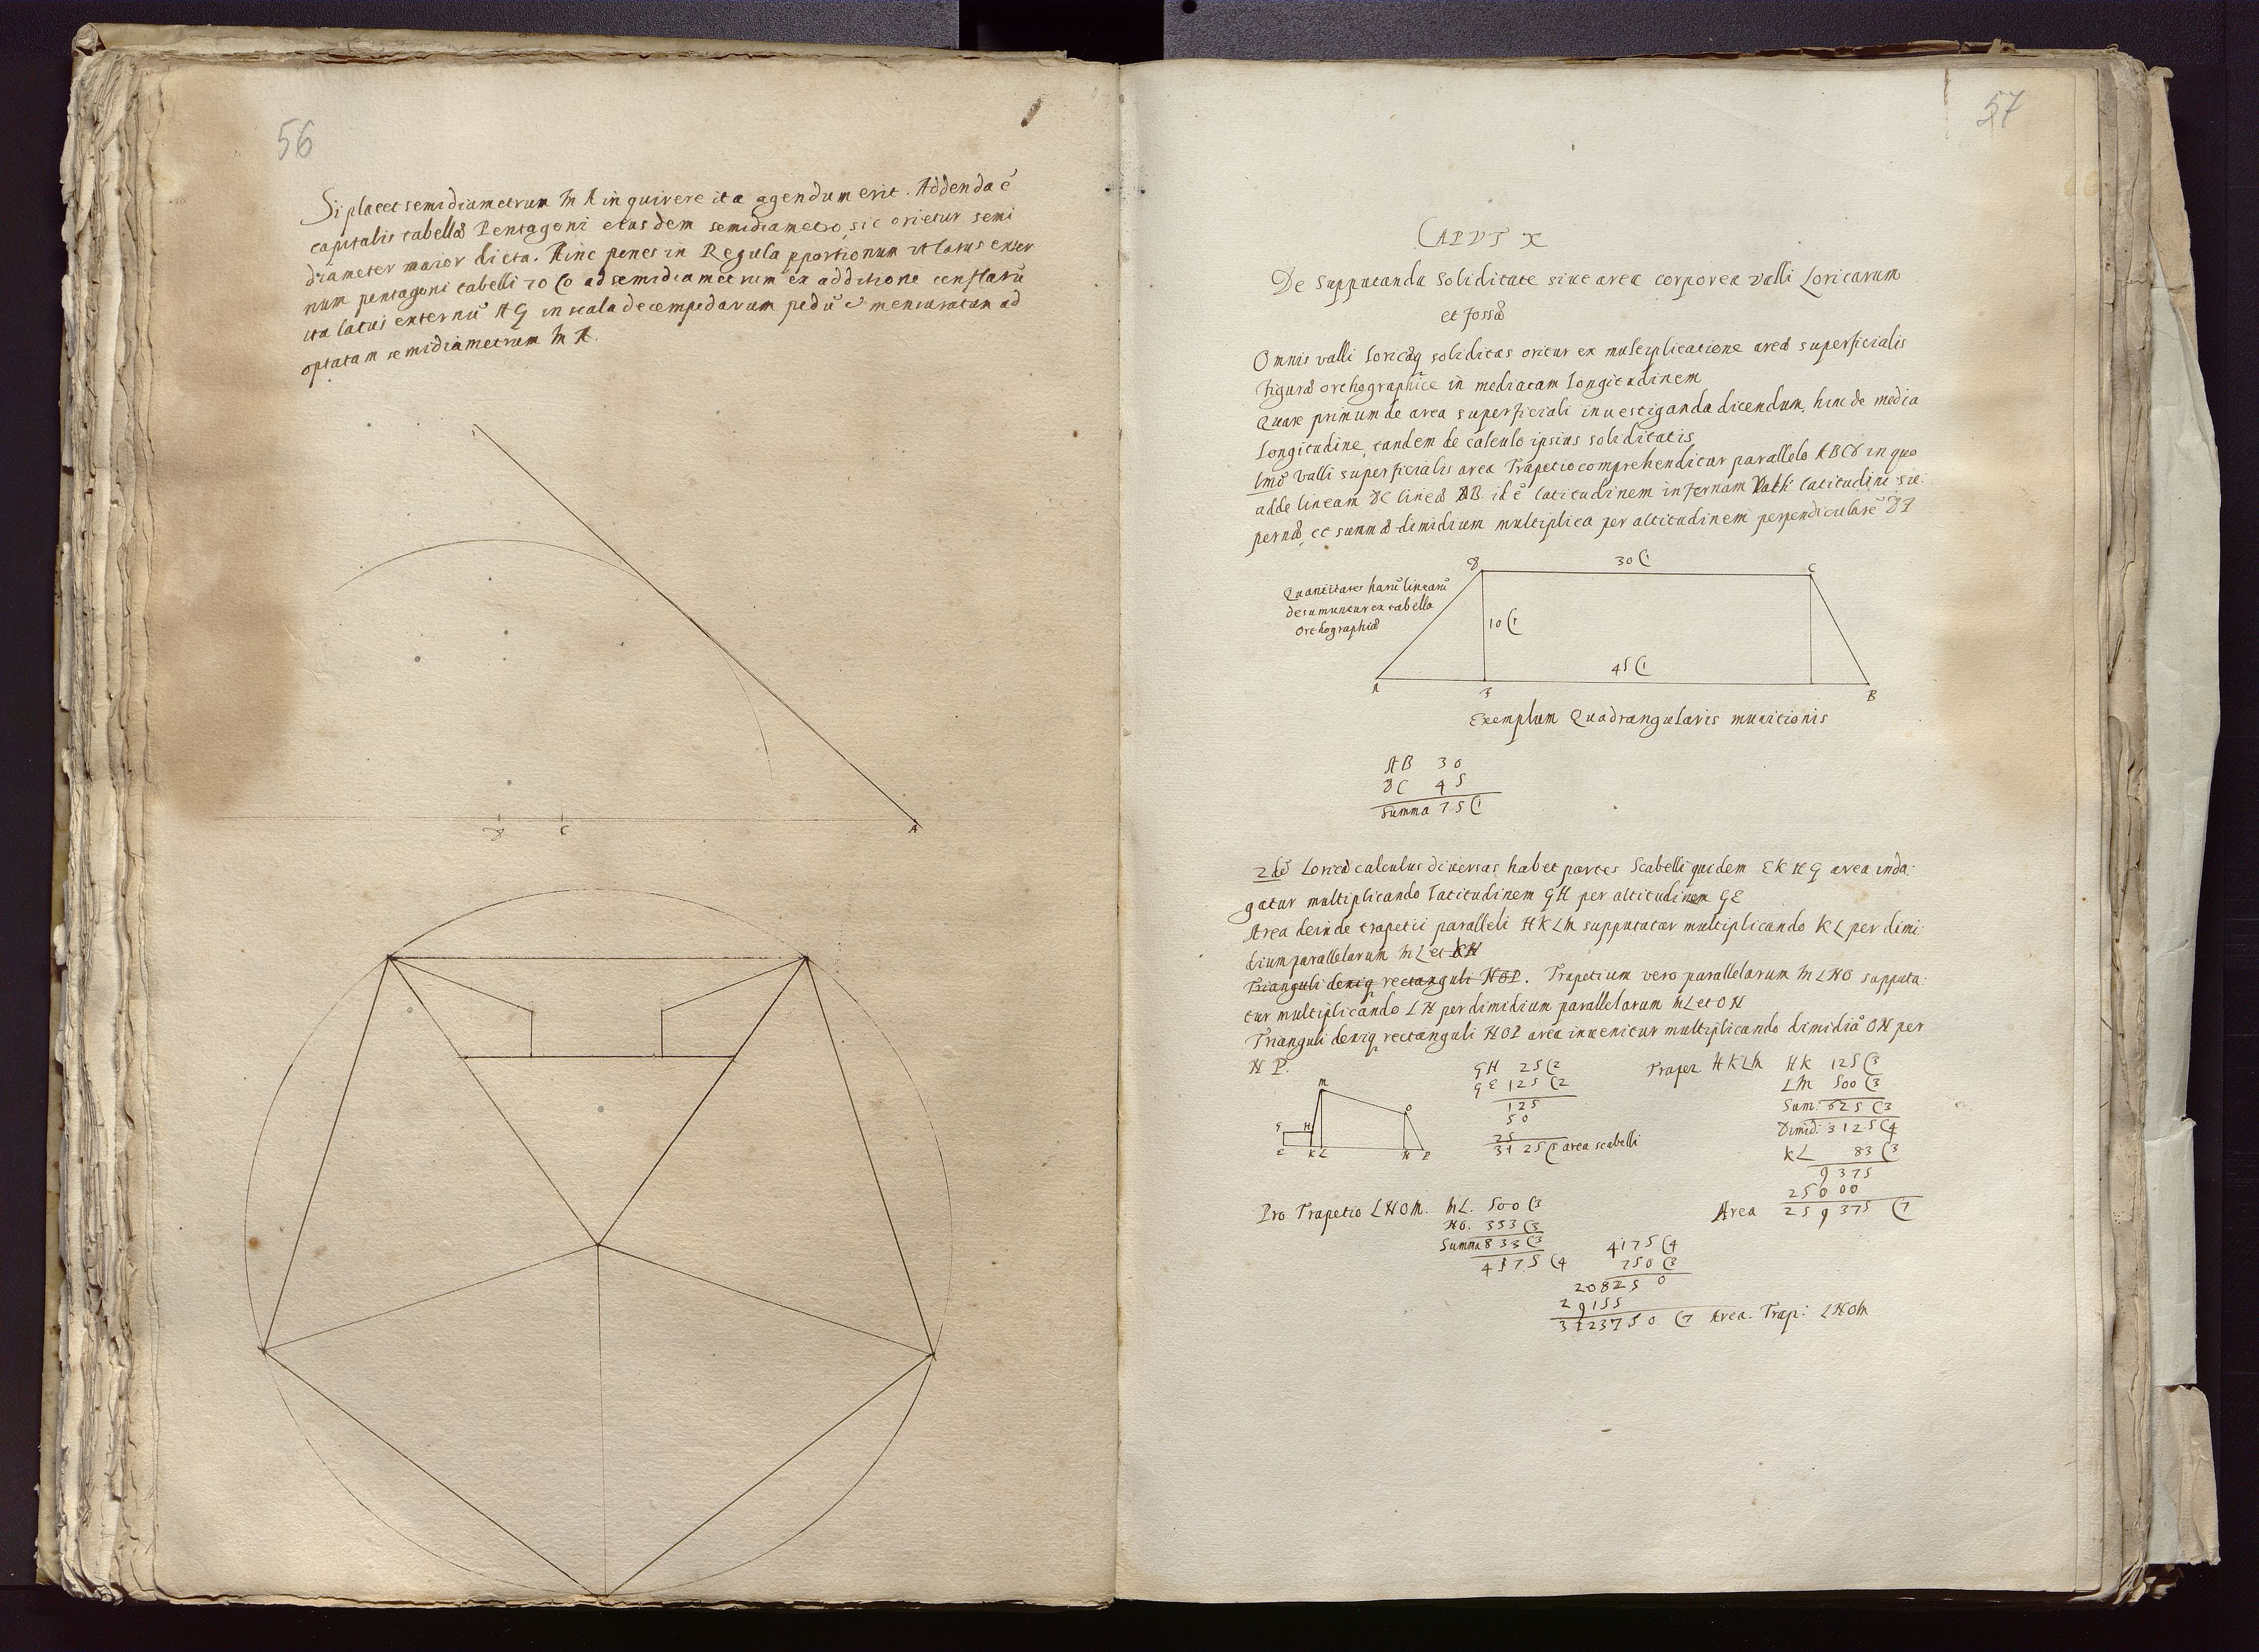 56
Si placet semidiametrum M A inquirere ita agendum erit. Addenda ē
capitalis tabellæ Pentagoni eiusdem semidiametro, sic orietur semi
diameter maior dicta. Hinc pones in Regula pportionum ut latus exter
num pentagoni tabelli 70 (0 ad semidiametrum ex additione conflatū
ita latus externū A G in scala decempedarum pedū ē mensuratum ad
optatam semidiametrum M A.
C
A
57
CAPVT X
De supputanda soliditate siue area corporea valli Loricarum
et fossæ
Omnis valli loricæq soliditas oritur ex multiplicatione areæ superficialis
figuræ orthographicē in mediatam longitudinem
Quare primum de area superficiali inuestiganda dicendum, hinc de media
longitudine, tandem de calculo ipsius soliditatis
1mō Valli superficialis area Trapetio comprehenditur parallelo ABCD in quo
adde lineam DC lineæ AB. id ē latitudinem infernam latitudini su:
pernæ, et summæ dimidium multiplica per altitudinem perpendicularē DF
D 30 (1 C
Quantitates harū linearū
desumuntur ex tabella
Orthographiæ
10 (1
45 (1
A F B
Exemplum Quadrangularis munitionis
AB 30
DC 45
Summa 75 (1
2dō Loricæ calculus diuersas habet partes Scabelli quidem EKHG area inda:
gatur multiplicando latitudinem GH per altitudinem GE
Area deinde trapetii paralleli HKLM supputatur multiplicando KL per dimi
dium parallelarum ML et KH
Trianguli deniq rectanguli NOP. Trapetium vero parallelarum MLNO supputa:
tur multiplicando LN per dimidium parallelarum ML et ON
Trianguli deniq rectanguli NOP area inuenitur multiplicando dimidiā ON per
N P.
M
O
G H
E K L N P
GH 25 (2
GE 125 (2
125
50
25
3125 (5 area scabelli
Trapez HKLM HK 125 (3
LM 500 (3
Sum: 625 (3
Dimid: 3125 (4
KL 83 (3
9375
25000
Area 259375 (7
Pro Trapetio LNOM. ML. 500 (3
NO. 333 (3
Summa 833 (3
4175 (4
4175 (4
750 (3
208250
29155
3123750 (7 Area. Trap: LNOM